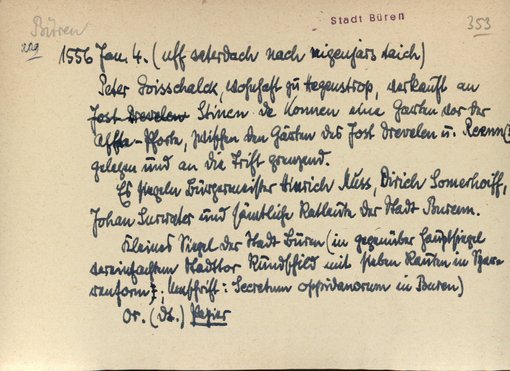 Büren
Stadt Büren
353
229
1556 Jan. 4. (uff saterdach nach nigenjars daich)
Peter Loisschalck, wohnhaft zu Hegenstrop, verkauft an
Jost Drevelen Stinen de Konnen eine Garten vor der
Pforte, zwischen den Gärten des Jost Drevelen u.
gelegen und an die Trift grenzend.
Es siegeln Bürgermeister Hinrich Nuss, Dirich Somerhoiff,
Johan Surwater und sämtliche Ratleute der Stadt Buren.
Kleines Siegel der Stadt Büren (in gegenüber Hauptsiegel
vereinfachtem Stadttor Rundschild mit sieben Rauten in Spar-
renform; Umschrift: Secretum oppidanorum in Buren)
Or. (dt.) Papier